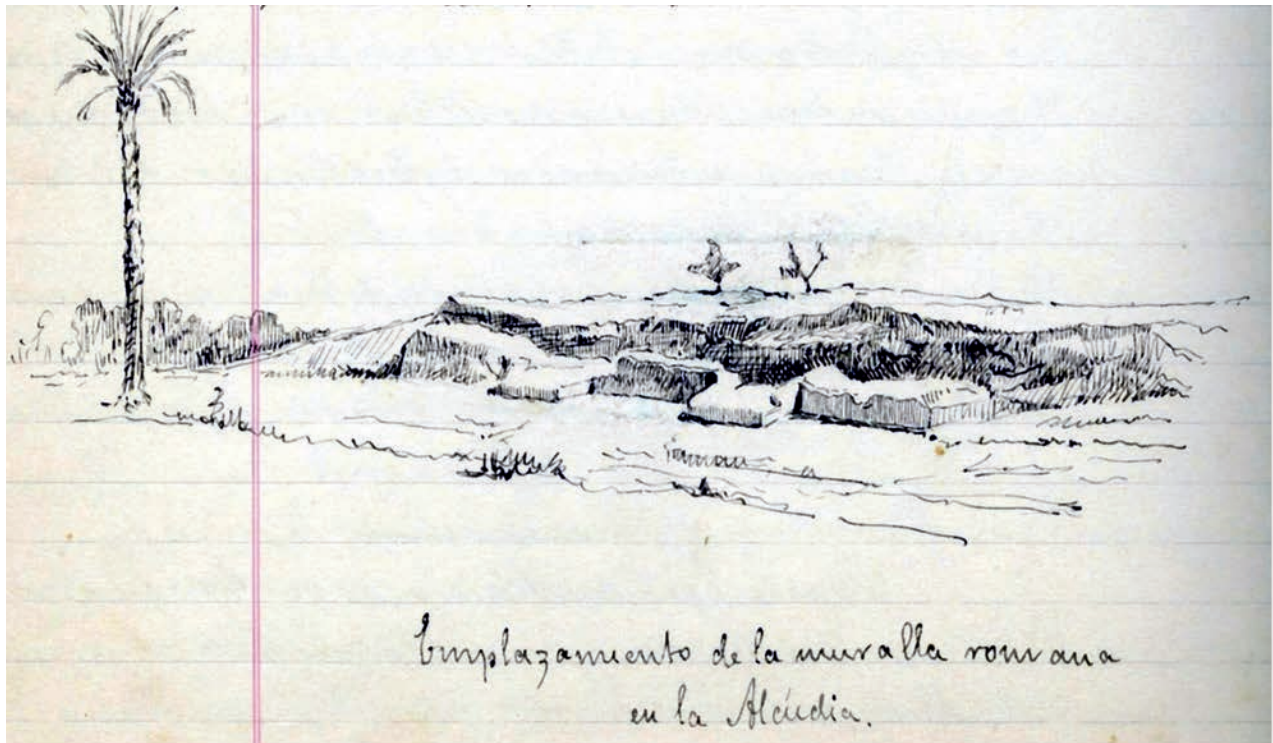 Emplazamiento de la muralla romana
en la Alcúdia.